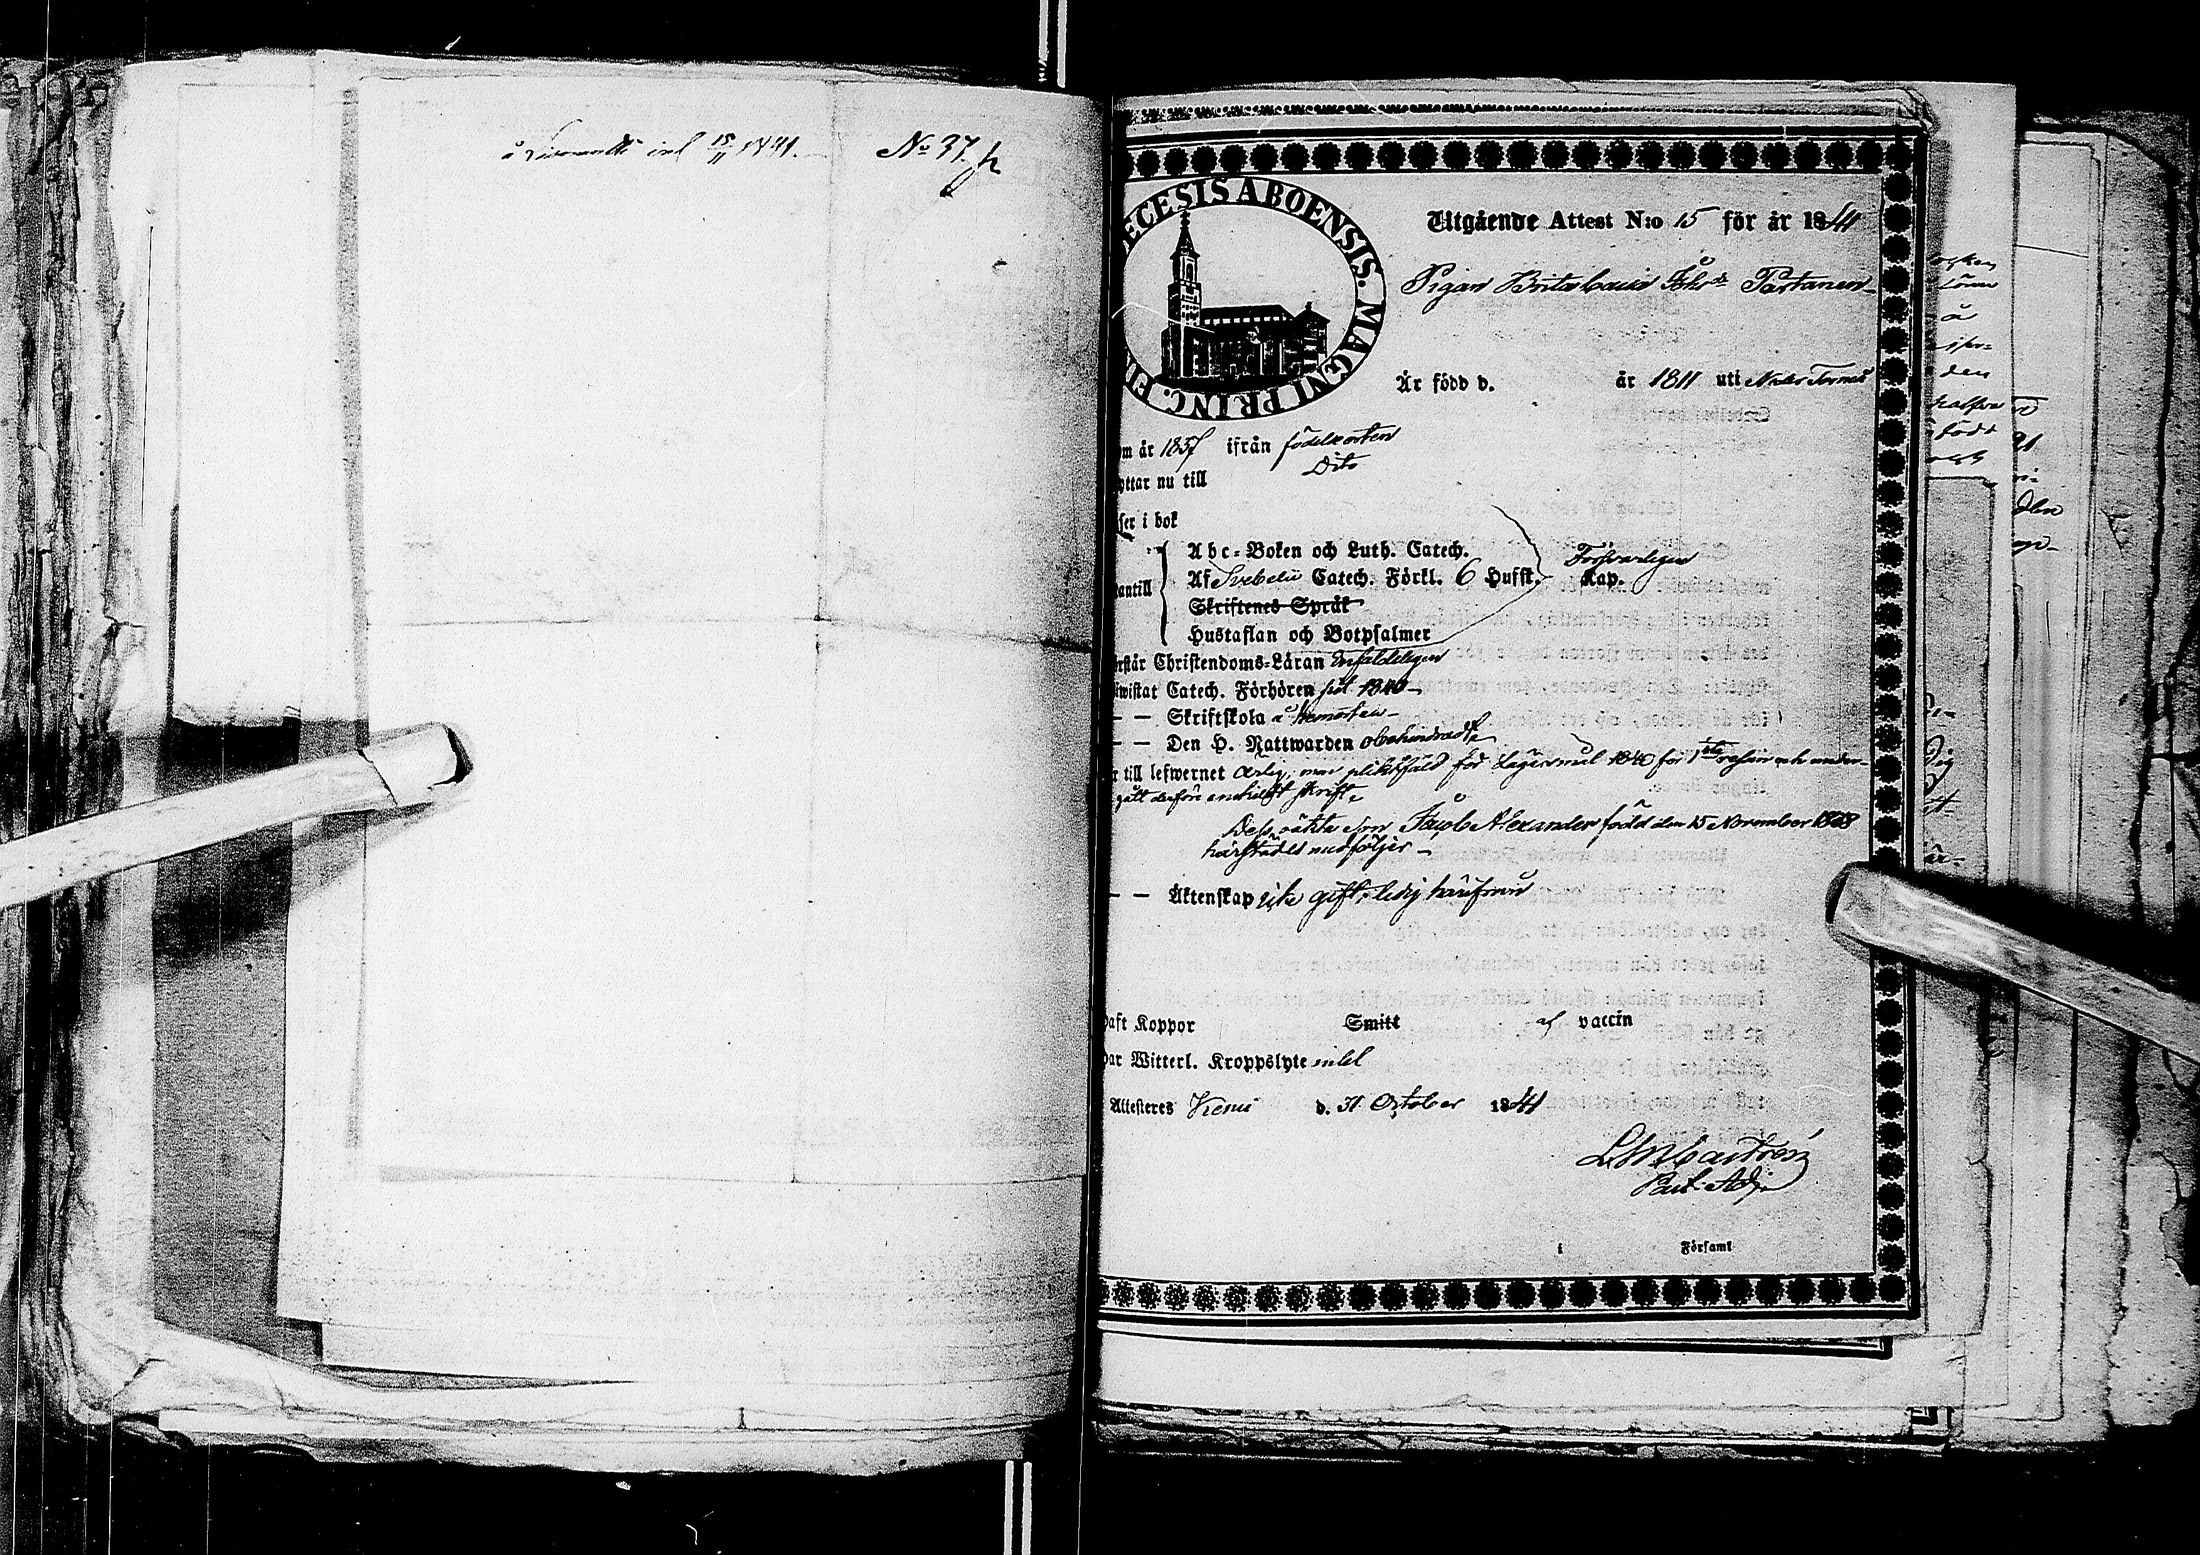 inl 15/11 1841. No 37.
ECESIS ABOENSIS. MAGNI PRINC. FI
Utgående Attest N:o 15 för år 1841
Pigan Brita Caisa Partanen
Är född d. år 1811 uti Neder Torneå
om år 1837 ifrån födelseorten
yttar nu till Dito
ser i bok
Abc-Boken och Luth. Catech.
Af Svebelii Catech. Förkl. 6 Hufst. Kap. Försvarligen
antill
Skriftenes Språk
Hustaflan och Botpsalmer
rstår Christendoms-Läran Enfaldeligen
iwistat Catech. Förhören sist 1840
— — Skriftskola å hemorten
— — Den H. Nattwarden obehindradt
r till lefwernet ärlig, men pliktfäld för Lägersmål 1840 för 1sta resan och under-
gått derföre enskildt skrift.
Dess oäkta son Jacob Alexander född den 15 November 1838
härstädes medföljer
— — Äktenskap icke gift, ledig
aft Koppor Smitt af vaccin
ar Witterl. Kroppslyte intet
Attesteres Kemi d. 31 October 1841
Castrén
Past. Adj.
i Församl